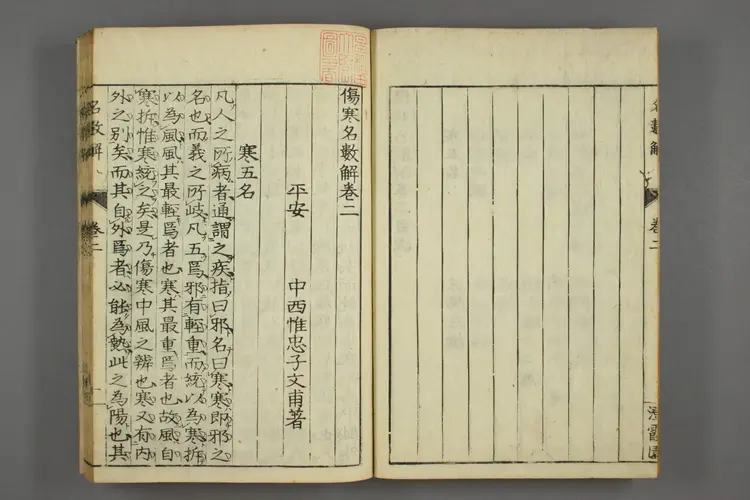 名數解
卷二
澹靄園
傷寒名數解卷二
平安 中西惟忠子文甫著
寒五名
凡人之所病者通謂之疾指曰邪名曰寒寒即邪之
名也而義之所岐凡五焉邪有輕重而統以為寒拆
以為風風其最輕焉者也寒其最重焉者也故風自
寒拆惟寒統之矣是乃傷寒中風之辨也寒又有内
外之別矣而其自外焉者必能為熱此之為陽也其
名數解
卷二
一